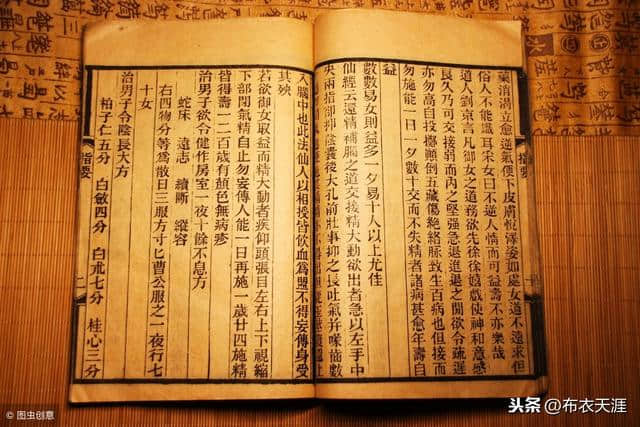 藥消渴立愈逆氣便下皮膚恆澤姿如處女道不遠求但
俗人不能識耳采女曰不逆人情而可益壽不亦樂哉
道人劉京言凡御女之道務欲先徐徐嬉戲使神和意感
良久乃可交接弱而內之堅强急退進退之間欲令疏遲
亦勿高自投擲顚倒五藏傷絕絡脈致生百病也但接而
勿施能一日一夕數十交而不失精者諸病甚愈年壽自
益
數數易女則益多一夕易十人以上尤佳
仙經云還精補腦之道交接精大動欲出者急以左手中
央兩指卻抑陰囊後大孔前壯事抑之長吐氣幷喙齒數
入腦中也此法仙人以相授皆飮血爲盟不得妄傳身受
其殃
若欲御女取益而精大動者疾仰頭張目左右上下視縮
下部閉氣精自止勿妄傳人能一日再施一歲廿四施精
皆得壽一二百歲有顏色無病疹
治男子欲令健作房室一夜十餘不息方
蛇床 遠志 續斷 縱容
右四物分等爲散日三服方寸匕曹公服之一夜行七
十女
治男子令陰長大方
柏子仁五分 白斂四分 白朮七分 桂心三分
指要
二
图虫创意
头条@布衣天涯